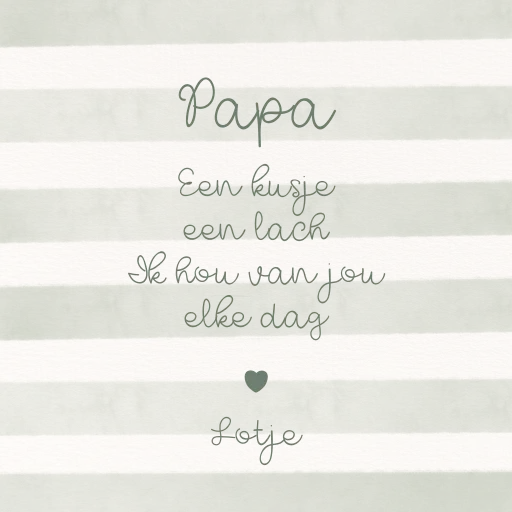 Papa
Een kusje
een lach
Ik hou van jou
elke dag
Lotje